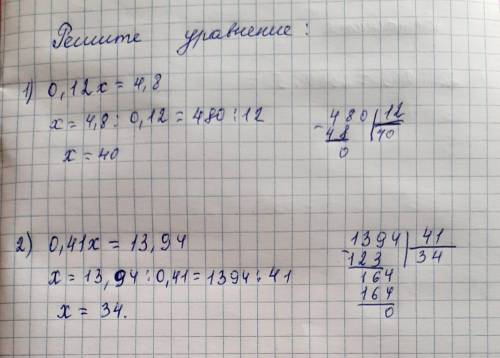 Решите уравнение:
1) 0,12x = 4,8
x = 4,8 : 0,12 = 480 : 12
x = 40
480 12
48 40
0
2) 0,41x = 13,94
x = 13,94 : 0,41 = 1394 : 41
x = 34.
1394 41
123 34
164
164
0